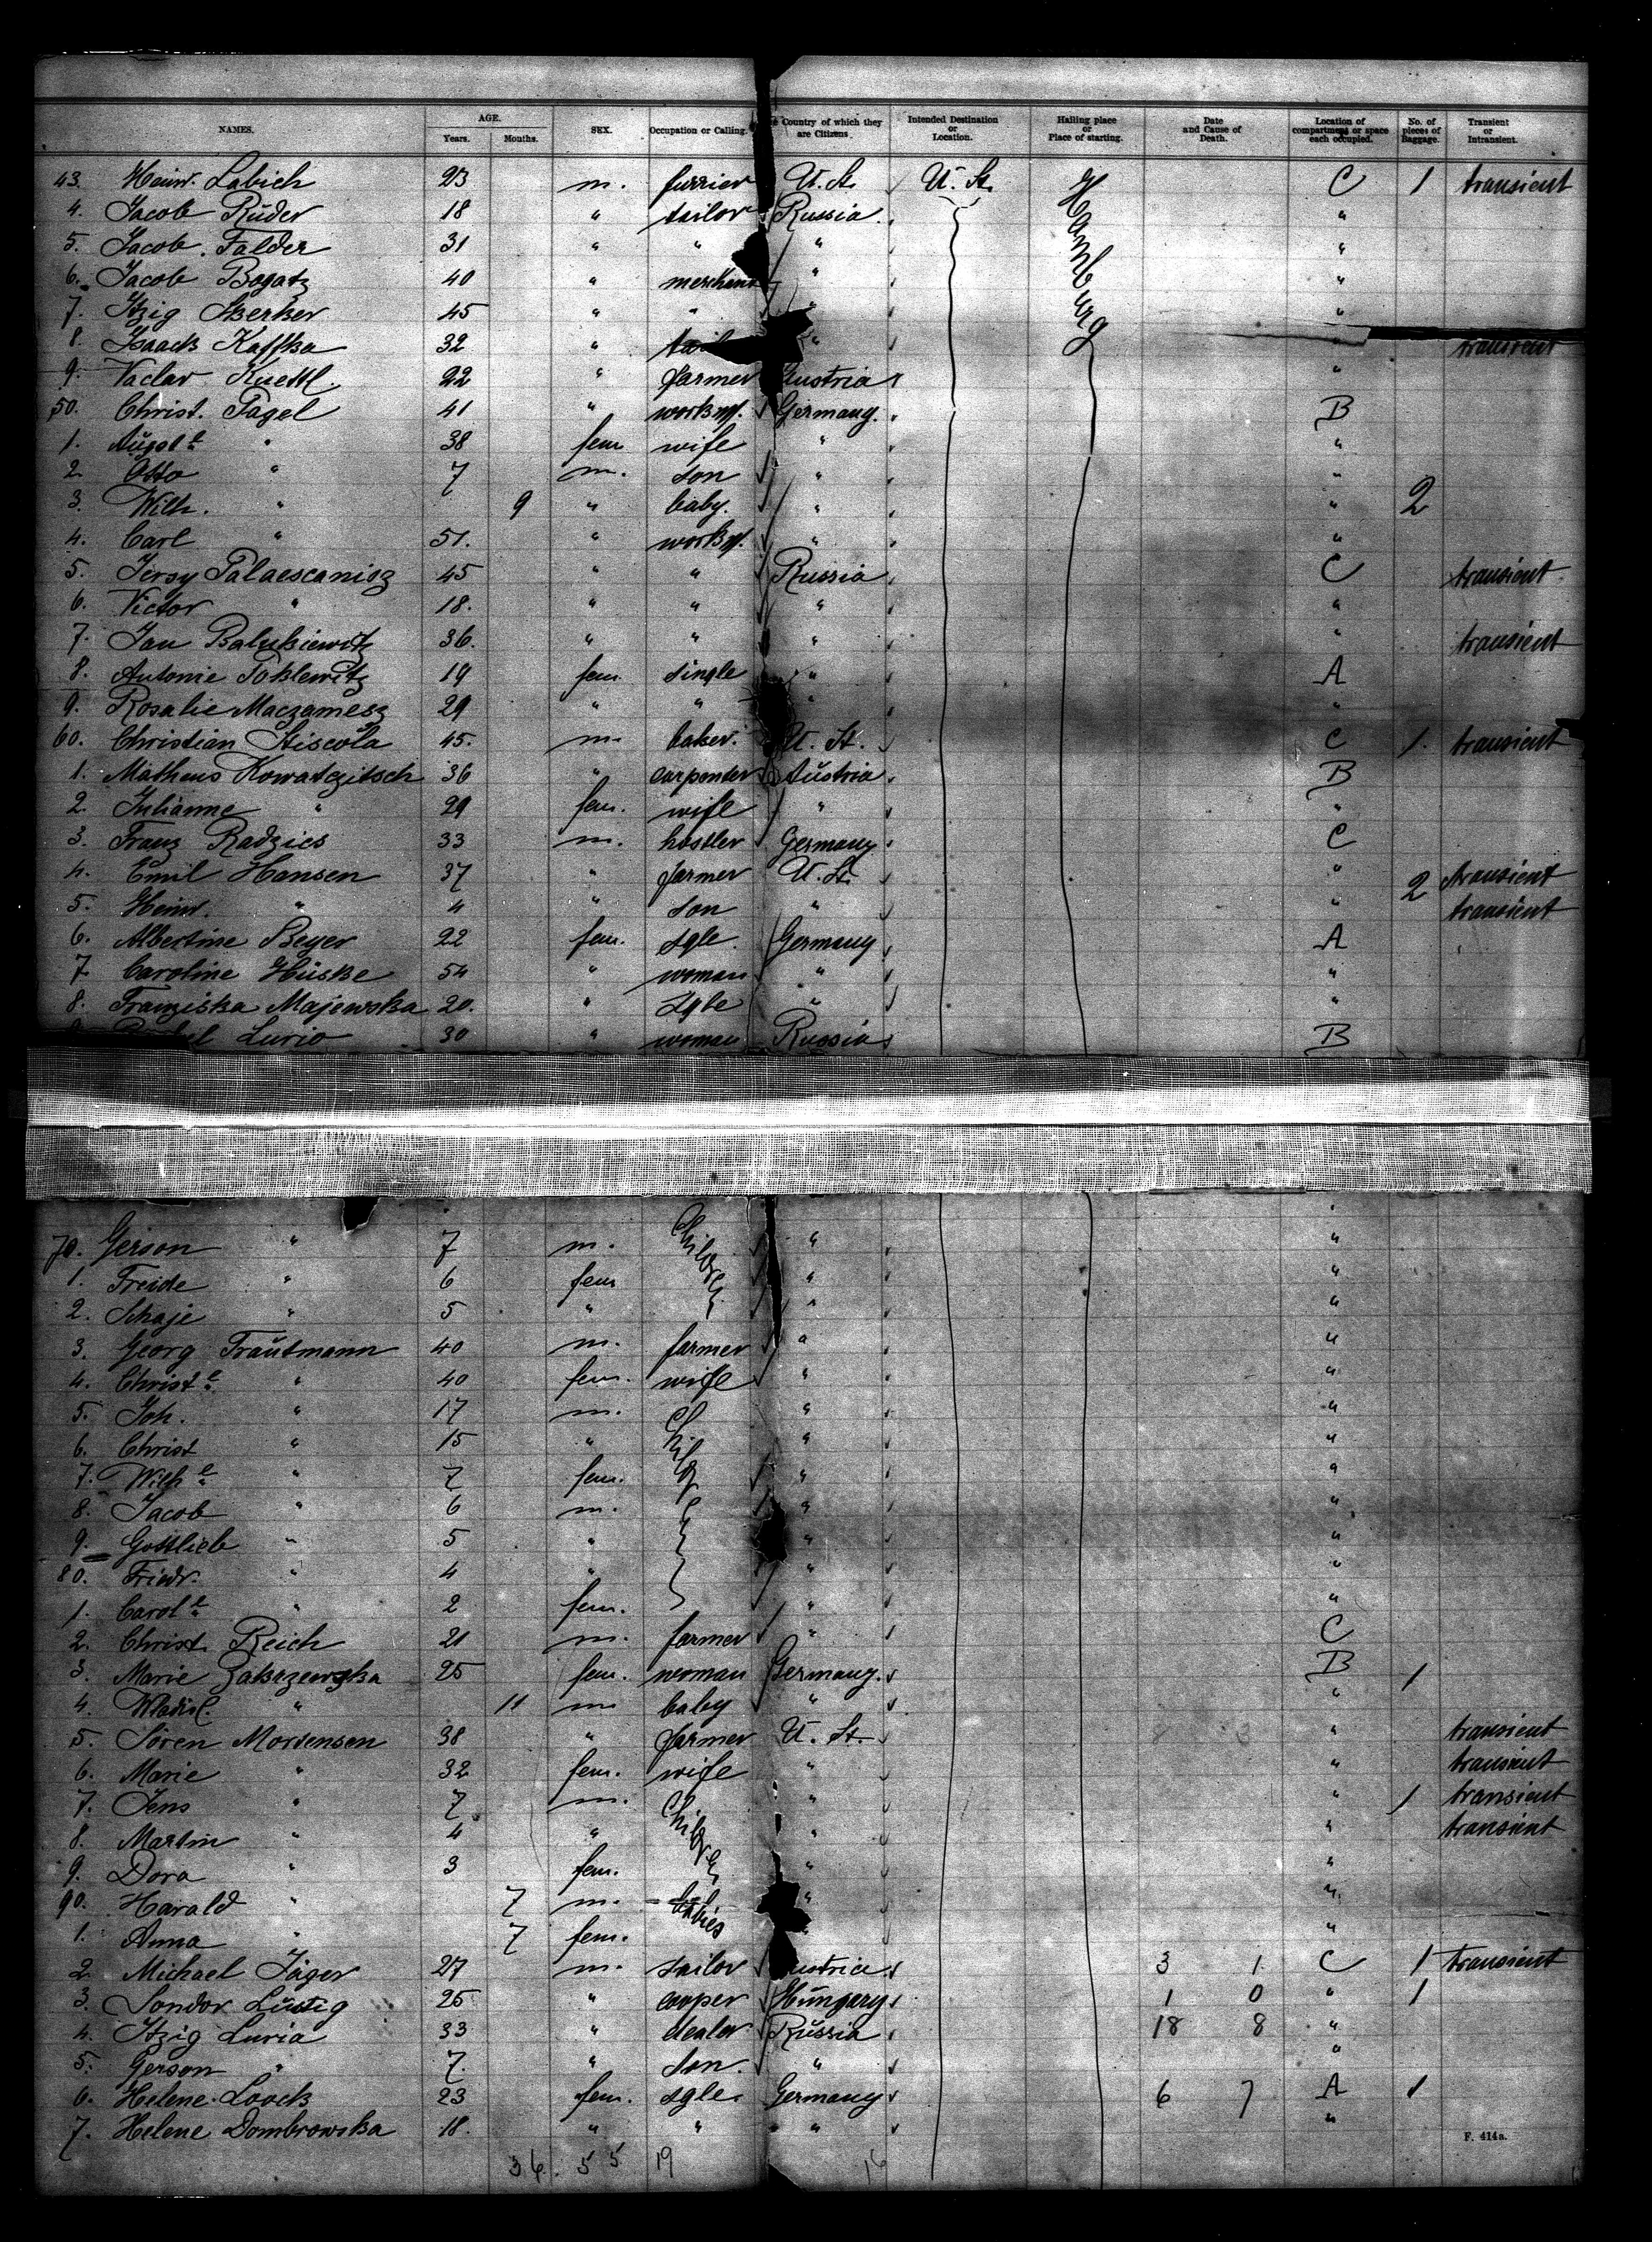 NAMES. AGE. Years. Months. SEX. Occupation or Calling. Country of which they are Citizens. Intended Destination or Location. Hailing place or Place of starting. Date and Cause of Death. Location of compartment or space each occupied. No. of pieces of Baggage. Transient or Intransient.
43. Heinr. Labich 23 m. furrier U. St. U. St. Hamburg C 1 transient
4. Jacob Rŭder 18 " tailor Russia "
5. Jacob Falder 31 " " " "
6. Jacob Bogatz 40 " merchant " "
7. Itzig Skerker 45 " " " "
8. Isaack Kaffka 32 " " " transient
9. Vaclav 22 " farmer Austria "
50. Christ. Pagel 41 " workm. Germany B
1. Aŭgste " 38 fem wife " "
2. Otto " 7 m. son " "
3. Wilh. " 9 " baby. " " 2
4. Carl " 51. " workm. " "
5. 45 " " Russia C transient
6. Victor " 18. " " " "
7. Jan Balukiewitz 36. " " " " transient
8. Antonie Toklewitz 19 fem. single " A
9. Rosalie Maczamesz 29 " " " "
60. Christian 45. m. baker. U. St. C 1. transient
1. Matheus Kowatzitsch 36 " carpenter Aŭstria B
2. Julianne " 29 fem. wife " "
3. Franz Radzies 33 m. hostler Germany C
4. Emil Hansen 37 " farmer U. St. " 2 transient
5. Heinr. " 4 " son " " transient
6. Albertine Beyer 22 fem. sgle. Germany A
7. Caroline Hŭske 54 " woman " "
8. Franziska Majewska 20. " sgle " "
Lurio 30 " woman Rŭssia B
70. Gerson " 7 m. Children " "
1. Freide " 6 fem " "
2. Schaje " 5 " " "
3. Georg Traŭtmann 40 m. farmer " "
4. Christe " 40 fem. wife " "
5. Joh. " 17 m. Children " "
6. Christ " 15 " " "
7. Wilhe " 7 fem. " "
8. Jacob " 6 m. " "
9. Gottlieb " 5 " " "
80. Friedr. " 4 " " "
1. Carole " 2 fem. " "
2. Christ. Reich 21 m. farmer " C
3. Marie Zakrzewska 25 fem. woman Germany. B 1
4. Wladisl. " 11 m. baby " "
5. Sören Mortensen 38 " farmer U. St. " transient
6. Marie " 32 fem. wife " " transient
7. Jens " 7 m. Children " " 1 transient
8. Martin " 4 " " " transient
9. Dora " 3 fem. " "
90. Harald " 7 m. babies " "
1. Anna " 7 fem. " "
2. Michael Jäger 27 m. tailor Austria 3 1 C 1 transient
3. Sandor Lŭstig 25 " cooper Hŭngary 1 0 " 1
4. Itzig Luria 33 " dealer Rŭssia 18 8 "
5. Gerson " 7. " son. " "
6. Helene Loock 23 fem. sgle. Germany 6 7 A 1
7. Helene Dombrowska 18. " " " "
F. 414a.
36. 55 19 16